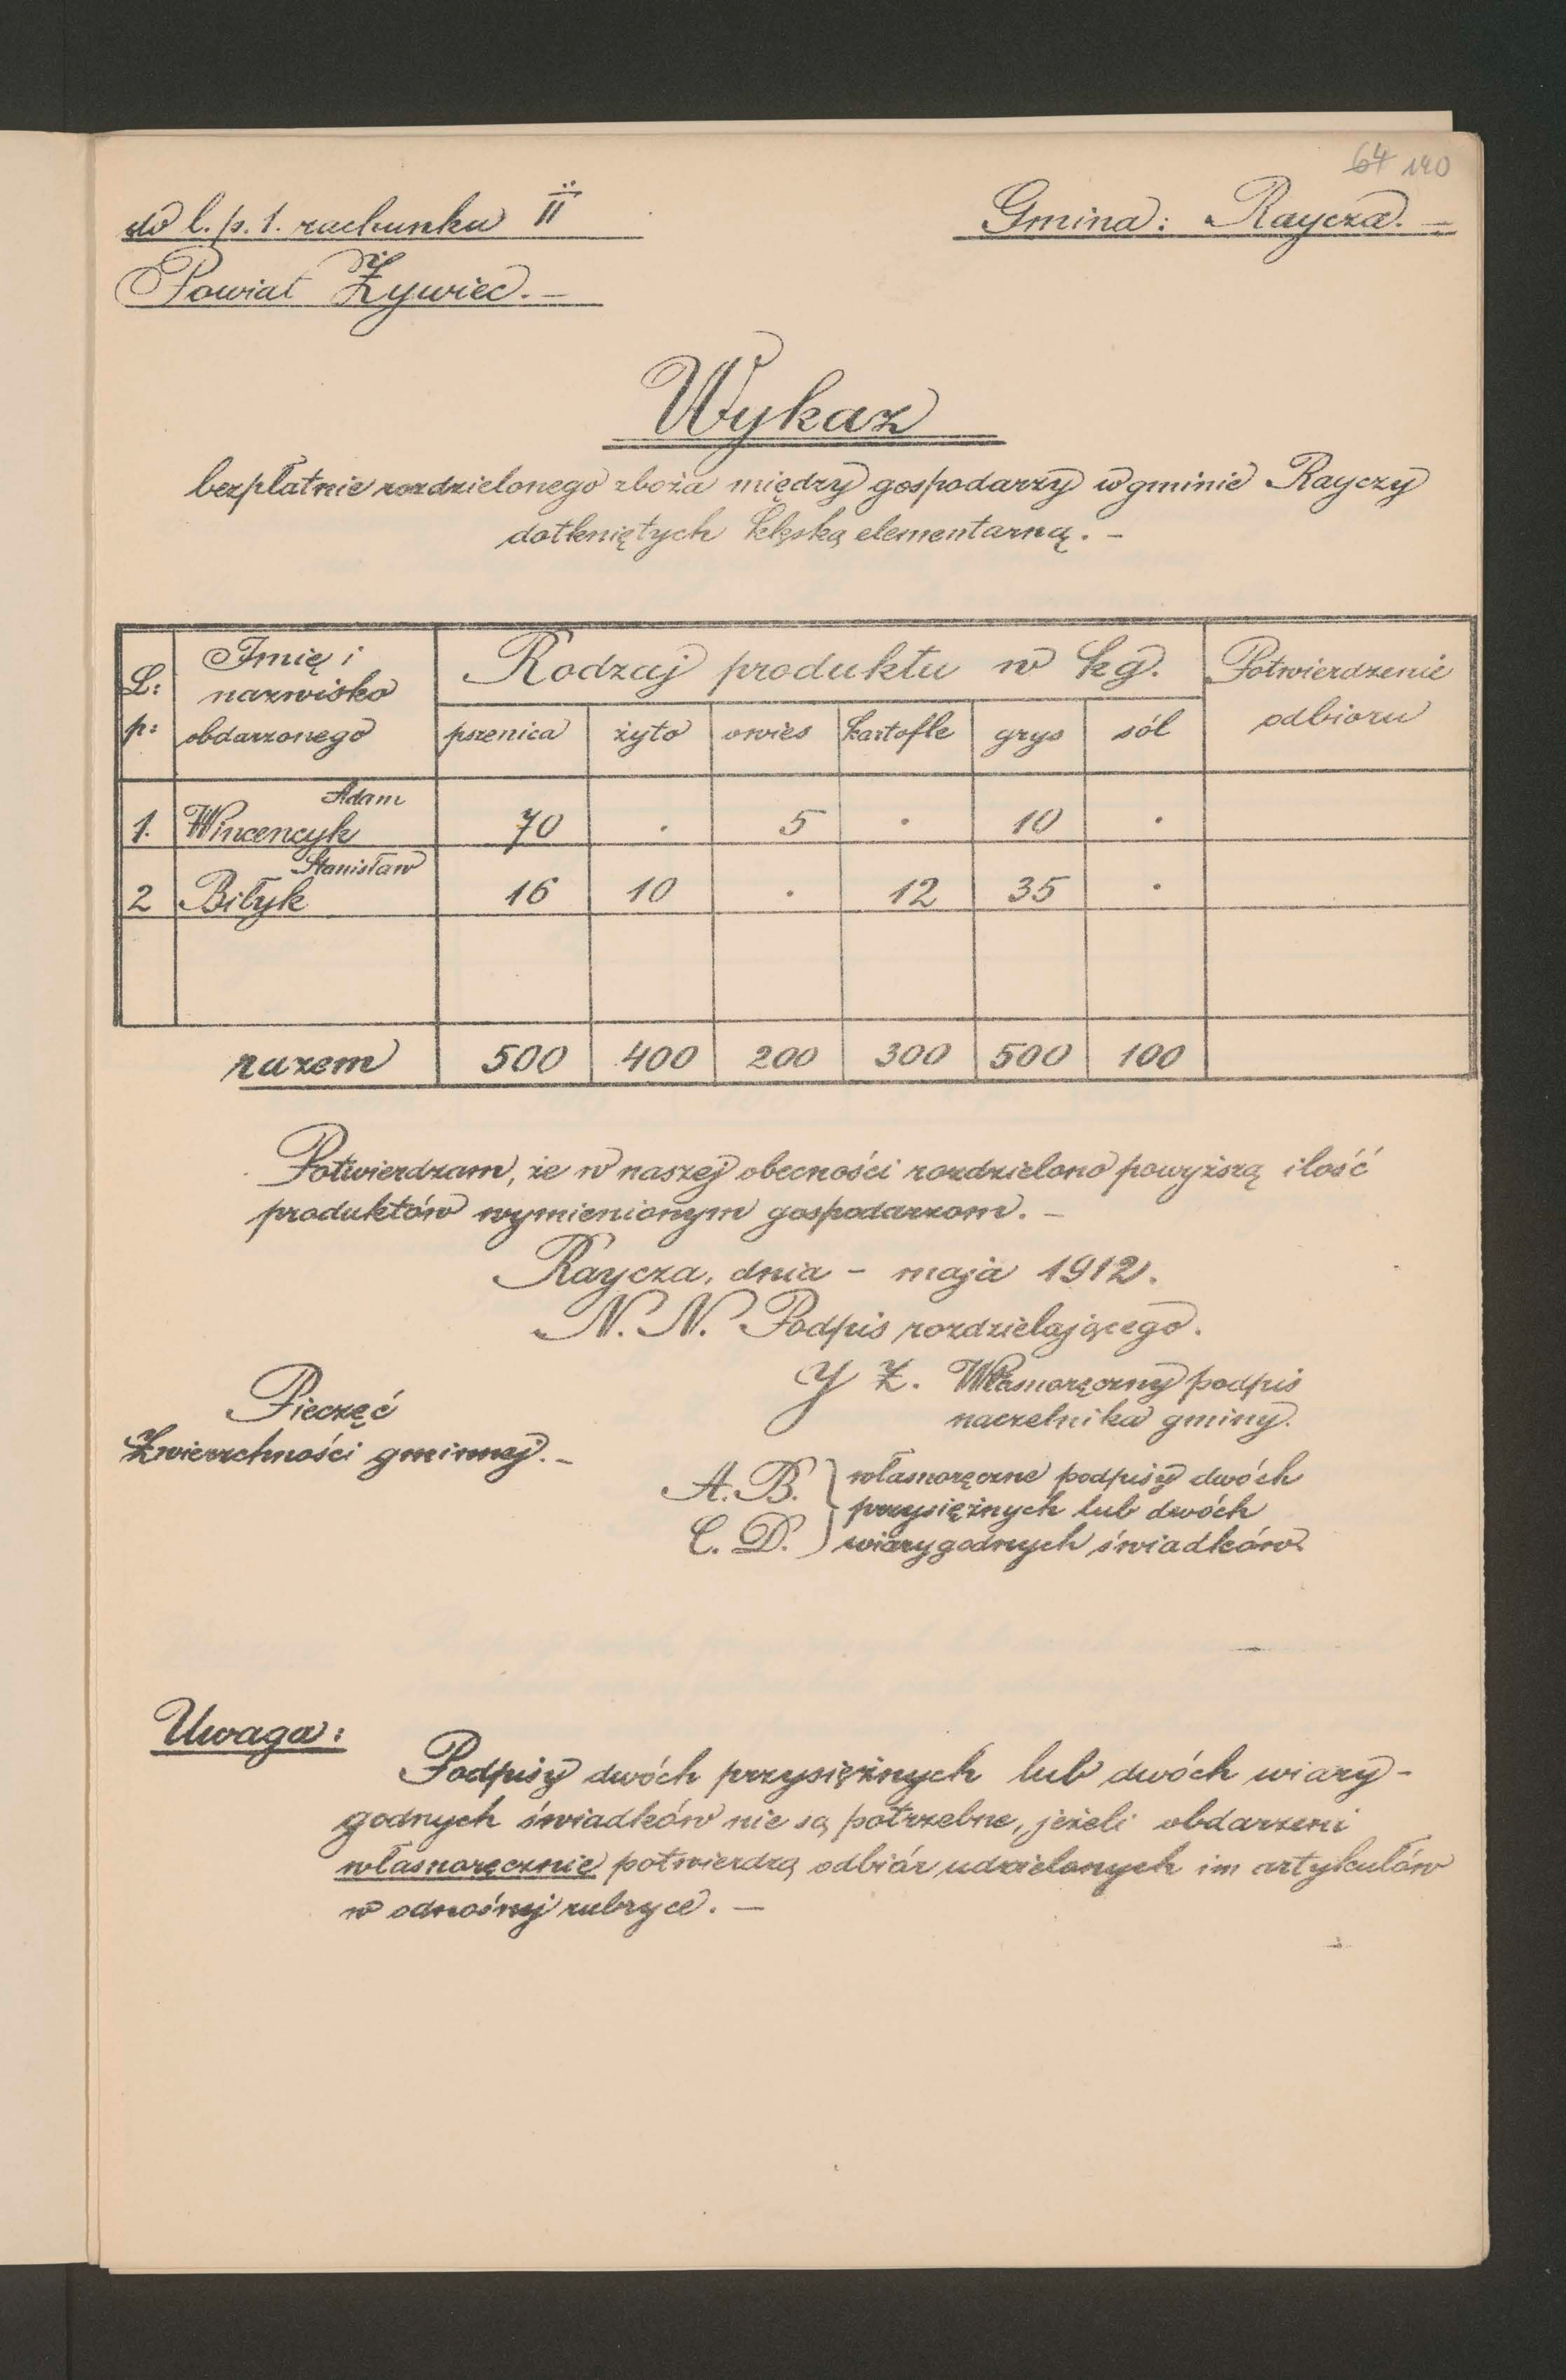 64 140
do l. p. 1. rachunku II
Gmina: Raycza. —
Powiat Żywiec. —
Wykaz
bezpłatnie rozdzielonego zboża między gospodarzy w gminie Rayczy
dotkniętych klęską elementarną. —
L: p: Imię i nazwisko obdarzonego Rodzaj produktu w kg. Potwierdzenie odbioru
pszenica żyto owies kartofle grys sól
Adam
1. Wincencyk 70 . 5 . 10 .
Stanisław
2 Biłyk 16 10 . 12 35 .
razem 500 400 200 300 500 100
Potwierdzam, że w naszej obecności rozdzielono powyższą ilość
produktów wymienionym gospodarzom. —
Raycza, dnia – maja 1912.
N. N. Podpis rozdzielającego.
Y Z. Własnoręczny podpis
naczelnika gminy.
Pieczęć
Zwierzchności gminnej. —
A. B. } własnoręczne podpisy dwóch
przysiężnych lub dwóch
C. D. } wiarygodnych świadków.
Uwaga:
Podpisy dwóch przysiężnych lub dwóch wiary-
godnych świadków nie są potrzebne, jeżeli obdarzeni
własnoręcznie potwierdzą odbiór udzielonych im artykułów
w odnośnej rubryce. —